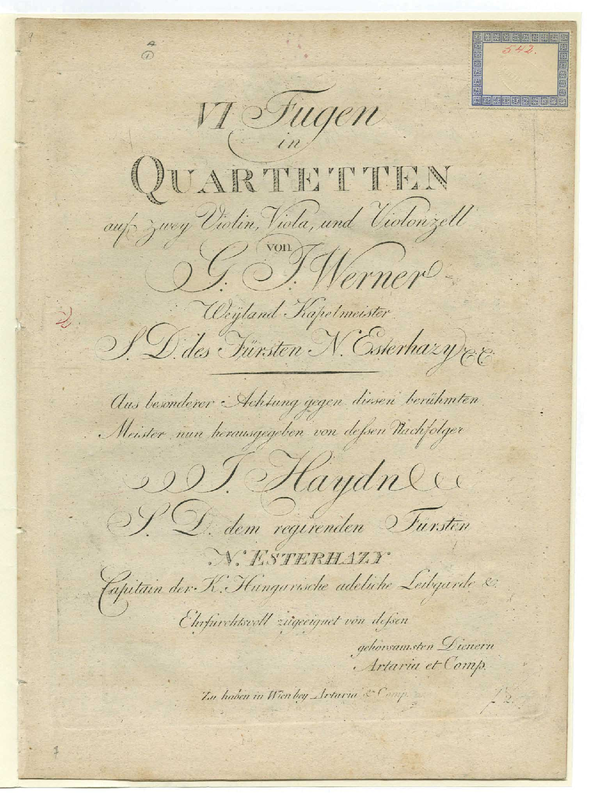 542.
VI Fugen
in
QUARTETTEN
auf zwey Violin, Viola, und Violonzell
von
G. J. Werner
Weyland Kapelmeister
S. D. des Fürsten N. Esterhazy &c &c
Aus besonderer Achtung gegen diesen berühmten
Meister nun herausgegeben von deſsen Nachfolger
J. Haydn
S. D. dem regirenden Fursten
N. ESTERHAZY
Capitain der K. Hungarische adeliche Leibgarde &.
Ehrfurchtsvoll zugeeignet von deſsen
gehorsamsten Dienern
Artaria et Comp.
Zu haben in Wien bey Artaria & Comp.